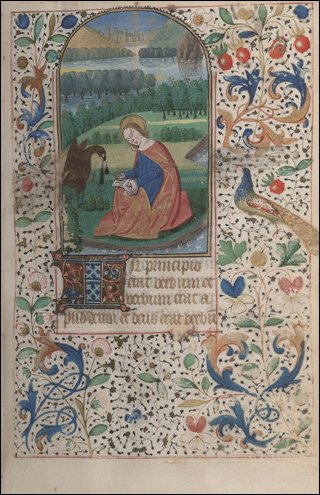 In principio
erat verbum et
verbum erat a
pud deum et deus erat verbu